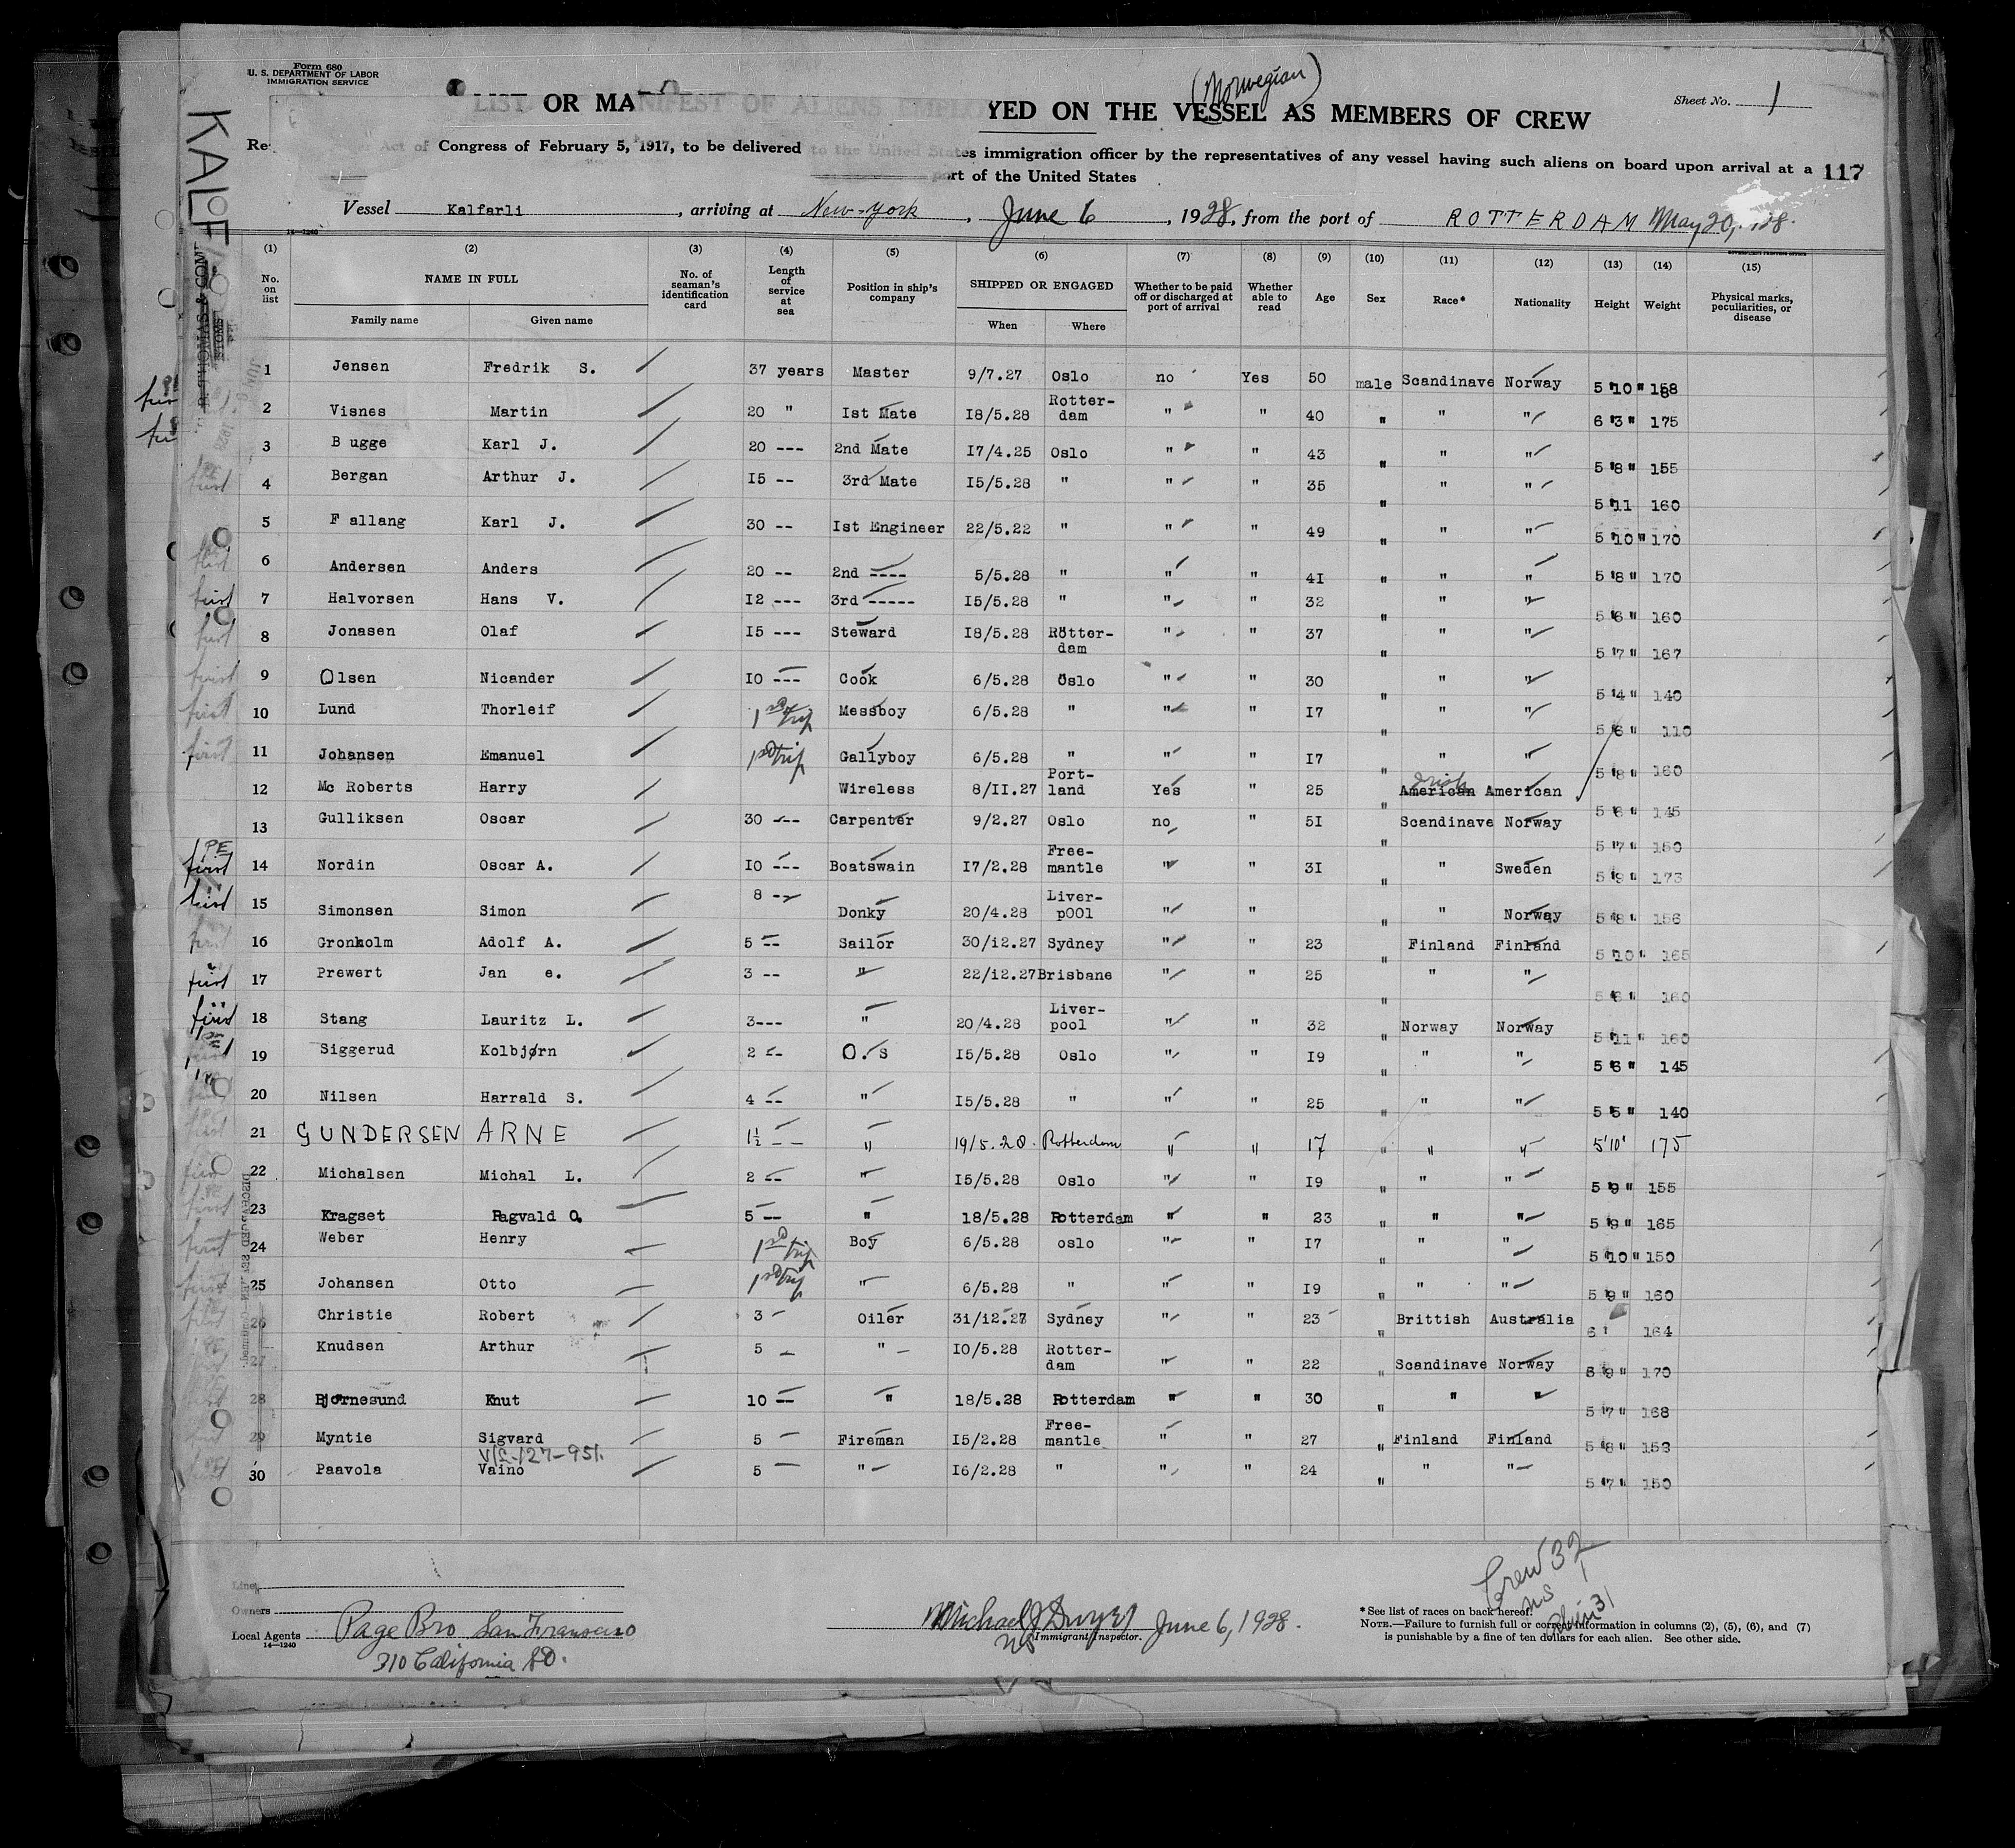 Form 680
U. S. DEPARTMENT OF LABOR
IMMIGRATION SERVICE
(Norwegian)
Sheet No. 1
LIST OR MANIFEST OF ALIENS EMPLOYED ON THE VESSEL AS MEMBERS OF CREW
Act of Congress of February 5, 1917, to be delivered to the United States immigration officer by the representatives of any vessel having such aliens on board upon arrival at a
port of the United States
117
Vessel Kalfarli, arriving at New-York, June 6, 1928, from the port of ROTTERDAM May 20, 28.
14—1240
(1) (2) (3) (4) (5) (6) (7) (8) (9) (10) (11) (12) (13) (14) (15)
No. on list NAME IN FULL Family name Given name No. of seaman's identification card Length of service at sea Position in ship's company SHIPPED OR ENGAGED When Where Whether to be paid off or discharged at port of arrival Whether able to read Age Sex Race* Nationality Height Weight Physical marks, peculiarities, or disease
1 Jensen Fredrik S. 37 years Master 9/7.27 Oslo no Yes 50 male Scandinave Norway 5 10 " 158
2 Visnes Martin 20 " Ist Mate I8/5.28 Rotter-dam " " 40 " " " 6 3 " 175
3 Bugge Karl J. 20 --- 2nd Mate I7/4.25 Oslo " " 43 " " " 5 8 " 155
4 Bergan Arthur J. I5 -- 3rd Mate I5/5.28 " " " 35 " " " 5 11 160
5 Fallang Karl J. 30 -- Ist Engineer 22/5.22 " " " 49 " " " 5 10 " 170
6 Andersen Anders 20 -- 2nd ---- 5/5.28 " " " 4I " " " 5 8 " 170
7 Halvorsen Hans V. I2 --- 3rd ----- I5/5.28 " " " 32 " " " 5 6 " 160
8 Jonasen Olaf I5 --- Steward I8/5.28 Rotter-dam " " 37 " " " 5 7 " 167
9 Olsen Nicander I0 --- Cook 6/5.28 Oslo " " 30 " " " 5 4 " 140
10 Lund Thorleif 1st trip Messboy 6/5.28 " " " I7 " " " 5 6 " 110
11 Johansen Emanuel 1st trip Gallyboy 6/5.28 " " " I7 " " " 5 8 " 160
12 Mc Roberts Harry Wireless 8/II.27 Port-land Yes " 25 " American Irish American 5 6 " 145
13 Gulliksen Oscar 30 --- Carpenter 9/2.27 Oslo no " 5I " Scandinave Norway 5 7 " 150
14 Nordin Oscar A. I0 --- Boatswain I7/2.28 Free-mantle " " 3I " " Sweden 5 9 " 173
15 Simonsen Simon 8 -- Donky 20/4.28 Liver-pOOl " " " " Norway 5 8 " 156
16 Gronholm Adolf A. 5 -- Sailor 30/I2.27 Sydney " " 23 " Finland Finland 5 10 " 165
17 Prewert Jan e. 3 -- " 22/I2.27 Brisbane " " 25 " " " 5 6 " 160
18 Stang Lauritz L. 3--- " 20/4.28 Liver-pool " " 32 " Norway Norway 5 11 " 160
19 Siggerud Kolbjørn 2 -- O. s I5/5.28 Oslo " " I9 " " " 5 6 " 145
20 Nilsen Harrald S. 4 -- " I5/5.28 " " " 25 " " " 5 6 " 140
21 GUNDERSEN ARNE 1½ -- " 19/5.28. Rotterdam " " 17 " " " 5'10' 175
22 Michalsen Michal L. 2 -- " I5/5.28 Oslo " " I9 " " " 5 9 " 155
23 Kragset Ragvald O. 5 -- " I8/5.28 Rotterdam " " 23 " " " 5 9 " 165
24 Weber Henry 1st trip Boy 6/5.28 oslo " " I7 " " " 5 10 " 150
25 Johansen Otto 1st trip " 6/5.28 " " " I9 " " " 5 9 " 160
26 Christie Robert 3 - Oiler 3I/I2.27 Sydney " " 23 " Brittish Australia 6 ' 164
27 Knudsen Arthur 5 - " I0/5.28 Rotter-dam " " 22 " Scandinave Norway 5 9 " 170
28 Bjørnesund Knut 10 -- " 18/5.28 Rotterdam " " 30 " " " 5 7 " 168
29 Myntie Sigvard 5 - Fireman I5/2.28 Free-mantle " " 27 " Finland Finland 5 8 " 153
V/L-127-951.
30 Paavola Vaino 5 - " I6/2.28 " " " 24 " " " 5 7 " 150
Crew 32
Line
Owners
Local Agents Page Bro San Fransciso
14—1240
310 California St.
Michael J Dwyer June 6, 1928.
Immigrant Inspector.
*See list of races on back hereof.
NOTE.—Failure to furnish full or correct information in columns (2), (5), (6), and (7)
is punishable by a fine of ten dollars for each alien. See other side.